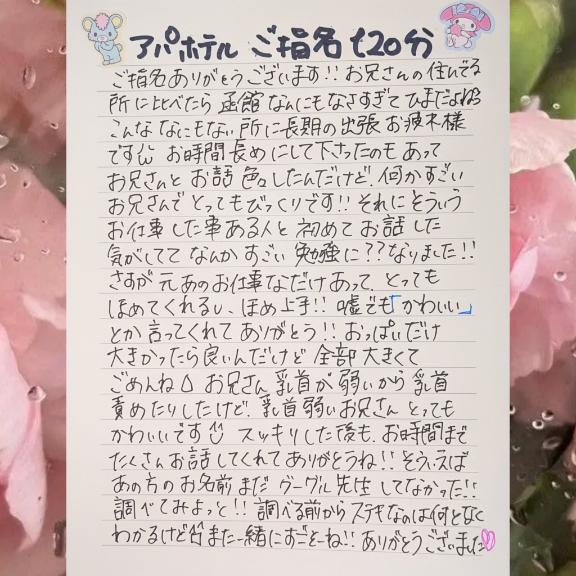 アパホテル ご指名 120分
ご指名ありがとうございます!! お兄さんの住んでる
所に比べたら 函館 なんにもなさすぎて ひまだよね
こんな なにもない 所に長期の出張 お疲れ様
です お時間 長めにして下さったのも あって
お兄さんと お話 色々したんだけど、何かすごい
お兄さんで とっても びっくりです!! それに そういう
お仕事した事ある人と 初めて お話した
気がしてて なんか すごい 勉強に??なりました!!
さすが 元 あのお仕事なだけあって、とっても
ほめてくれるし、ほめ上手!! 嘘でも「かわいい」
とか 言ってくれて ありがとう!! おっぱいだけ
大きかったら良いんだけど 全部 大きくて
ごめんね お兄さん 乳首が 弱いから 乳首
責めたりしたけど、乳首 弱い お兄さん とっても
かわいいです スッキリした後も、お時間まで
たくさん お話してくれて ありがとうね!! そういえば
あの方の お名前 まだ グーグル先生 してなかった!!
調べてみよっと!! 調べる前から ステキなのは 何となく
わかるけど また 一緒に すごそーね!! ありがとうございました